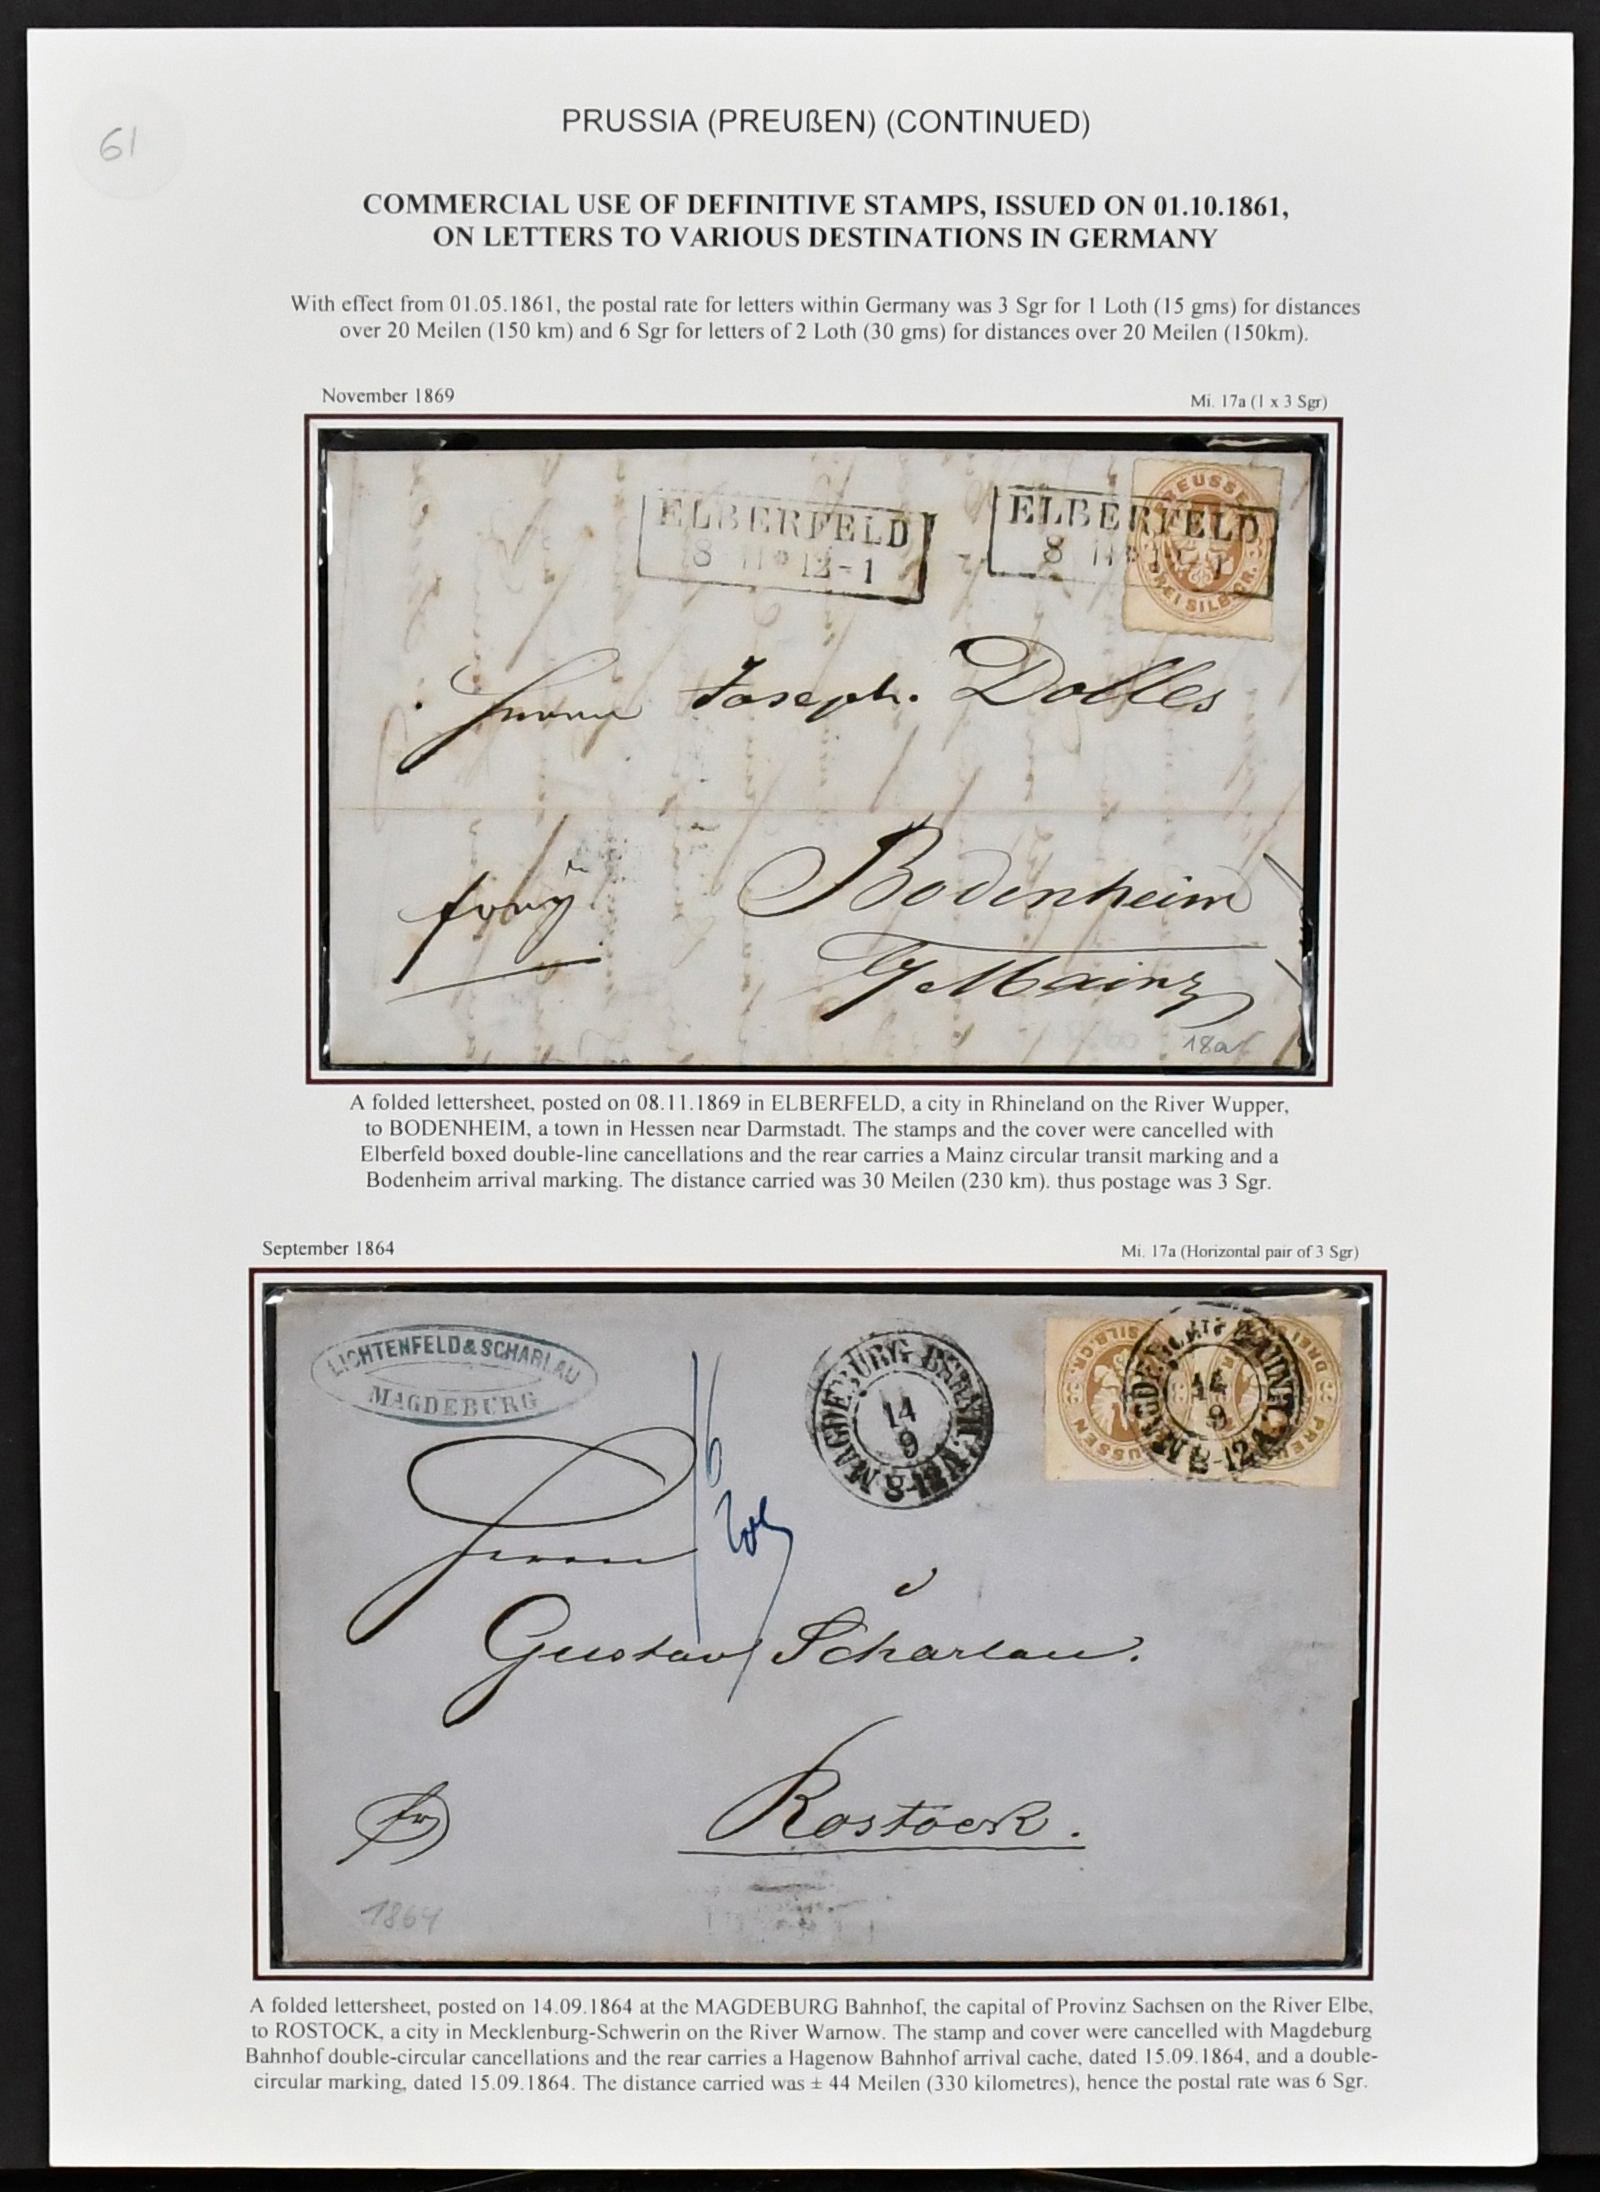 61
PRUSSIA (PREUßEN) (CONTINUED)
COMMERCIAL USE OF DEFINITIVE STAMPS, ISSUED ON 01.10.1861,
ON LETTERS TO VARIOUS DESTINATIONS IN GERMANY
With effect from 01.05.1861, the postal rate for letters within Germany was 3 Sgr for 1 Loth (15 gms) for distances
over 20 Meilen (150 km) and 6 Sgr for letters of 2 Loth (30 gms) for distances over 20 Meilen (150km).
November 1869
Mi. 17a (1 x 3 Sgr)
ELBERFELD
8 11 * 12-1
ELBERFELD
8 11 *
PREUSSEN
DREI SILB.GR.
Herrn Joseph Dolles
franco
Bodenheim
b/ Mainz
18a
A folded lettersheet, posted on 08.11.1869 in ELBERFELD, a city in Rhineland on the River Wupper,
to BODENHEIM, a town in Hessen near Darmstadt. The stamps and the cover were cancelled with
Elberfeld boxed double-line cancellations and the rear carries a Mainz circular transit marking and a
Bodenheim arrival marking. The distance carried was 30 Meilen (230 km). thus postage was 3 Sgr.
September 1864
Mi. 17a (Horizontal pair of 3 Sgr)
LICHTENFELD & SCHARLAU
MAGDEBURG
MAGDEBURG BAHNHOF
14
9
14
9
6
Herrn
Gustav Scharlau.
Rostock.
fr
1864
A folded lettersheet, posted on 14.09.1864 at the MAGDEBURG Bahnhof, the capital of Provinz Sachsen on the River Elbe,
to ROSTOCK, a city in Mecklenburg-Schwerin on the River Warnow. The stamp and cover were cancelled with Magdeburg
Bahnhof double-circular cancellations and the rear carries a Hagenow Bahnhof arrival cache, dated 15.09.1864, and a double-
circular marking, dated 15.09.1864. The distance carried was ± 44 Meilen (330 kilometres), hence the postal rate was 6 Sgr.